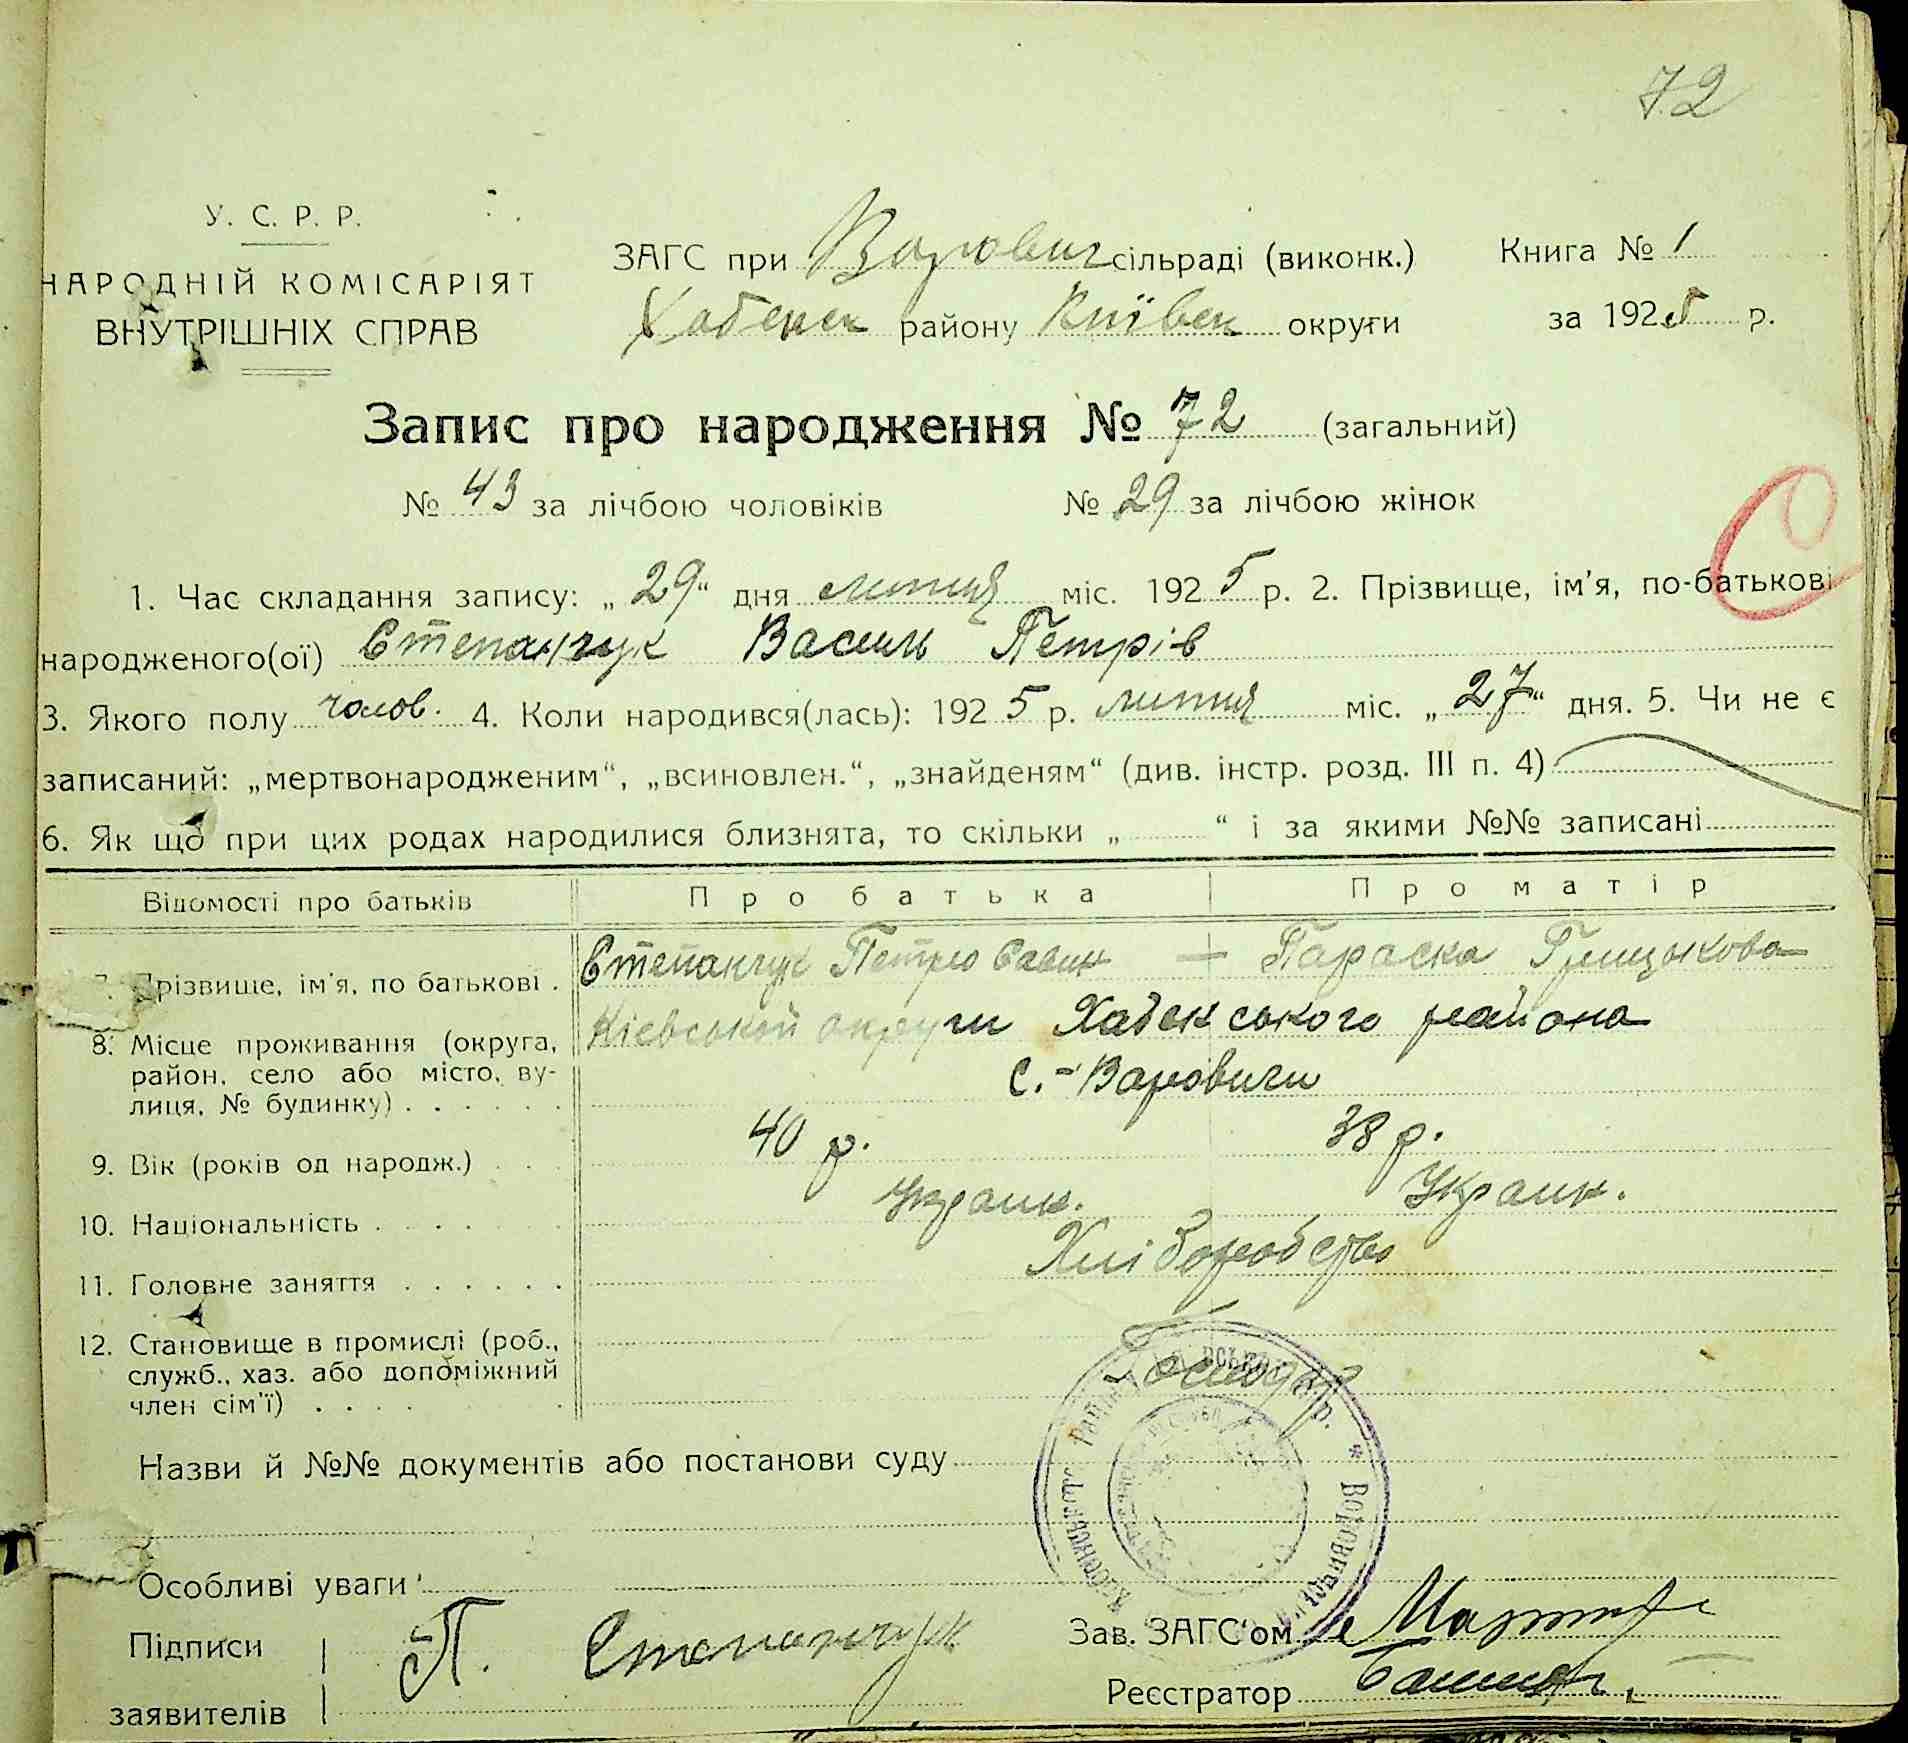 72
У. С. Р. Р.
НАРОДНІЙ КОМІСАРІЯТ
ВНУТРІШНІХ СПРАВ
ЗАГС при Варович сільраді (виконк.)
Хабенск району Київськ округи
Книга № 1
за 1925 р.
Запис про народження № 72 (загальний)
№ 43 за лічбою чоловіків № 29 за лічбою жінок
1. Час складання запису: „ 29 “ дня липня міс. 1925 р. 2. Прізвище, ім'я, по-батькові
народженого(ої) Степанчук Василь Петрів
3. Якого полу чолов. 4. Коли народився(лась): 1925 р. липня міс. „ 27 “ дня. 5. Чи не є
записаний: „мертвонародженим“, „всиновлен.“, „знайденям“ (див. інстр. розд. III п. 4)
6. Як що при цих родах народилися близнята, то скільки „ “ і за якими №№ записані
Відомості про батьків Про батька Про матір
7. Прізвище, ім'я, по батькові . Степанчук Петро Савин — Параска Грицькова
8. Місце проживання (округа, район, село або місто, вулиця, № будинку) . . . . . .
Кіевської округи Хабенського района
с. - Варовичи
9. Вік (років од народж.) . . . 40 р. 38 р.
10. Національність . . . . . Украин. Украин.
11. Головне заняття . . . . . . Хліборобство
12. Становище в промислі (роб.,
служб., хаз. або допоміжний
член сім'ї) . . . .
Господар
Назви й №№ документів або постанови суду
Особливі уваги
Підписи
заявителів
П. Степанчук
Зав. ЗАГС'ом
Реєстратор